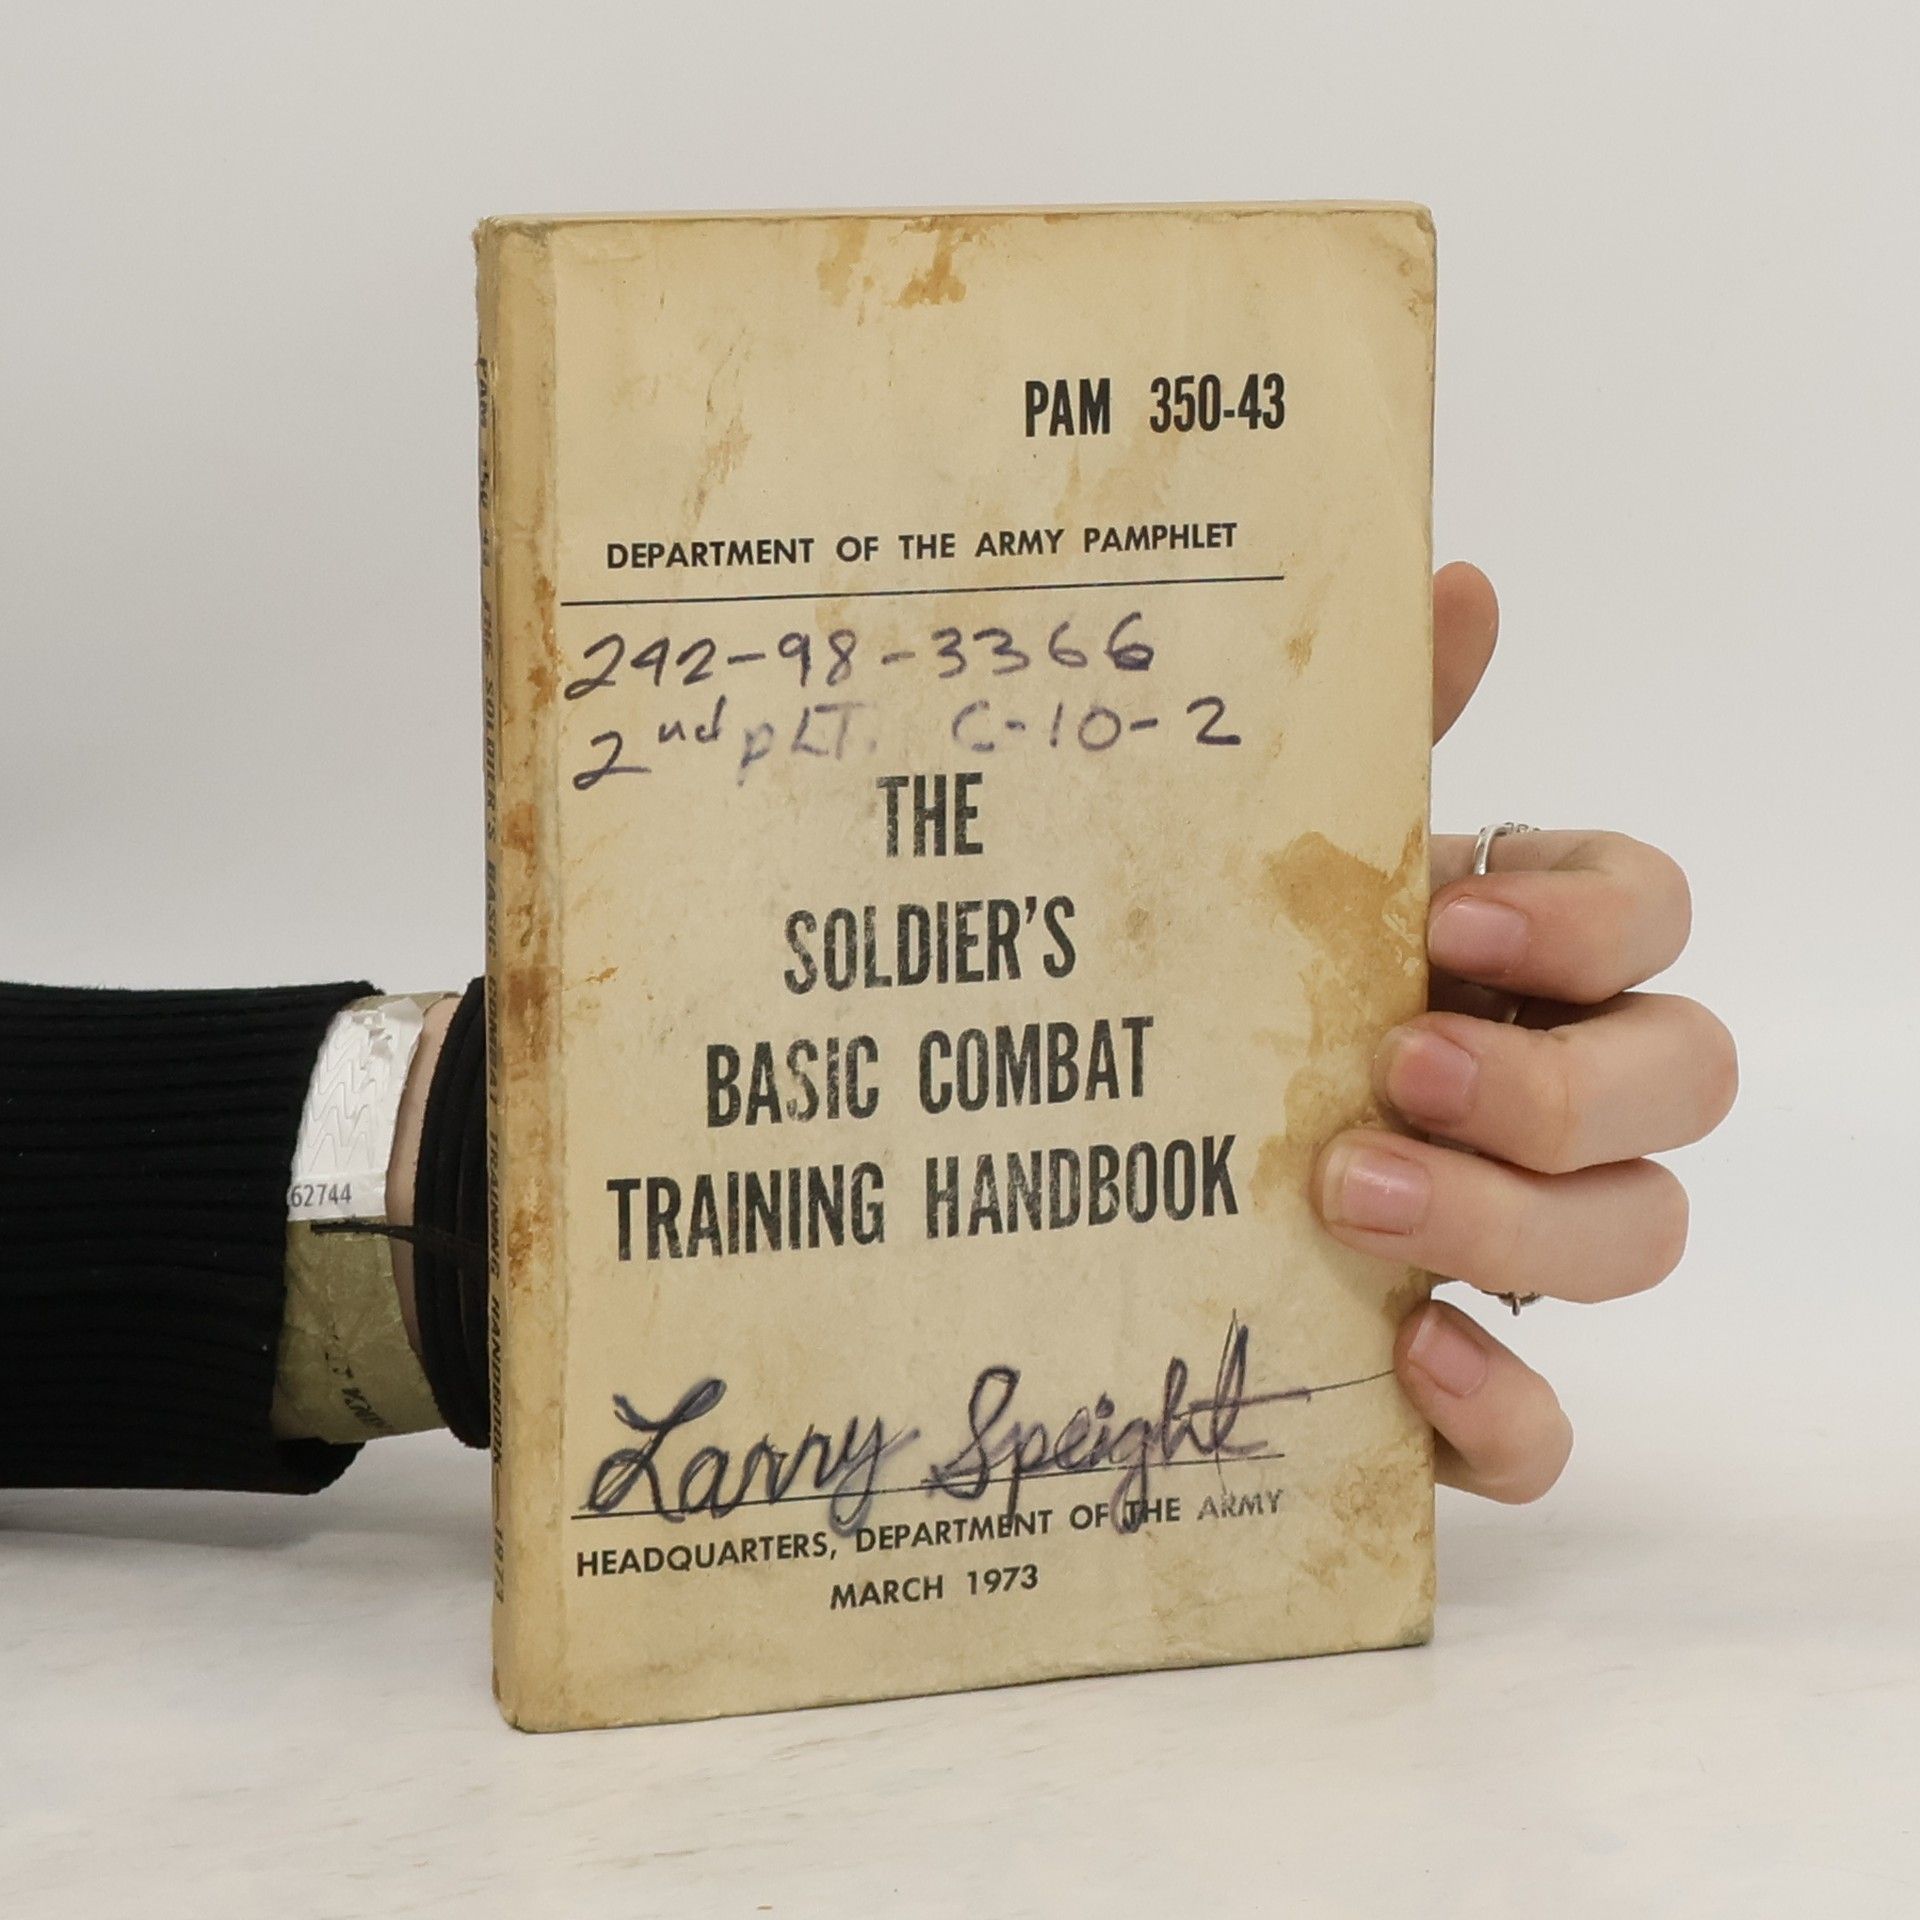 PAM 350-43
DEPARTMENT OF THE ARMY PAMPHLET
242-98-3366
2nd PLT. C-10-2
THE
SOLDIER'S
BASIC COMBAT
TRAINING HANDBOOK
Larry Speight
HEADQUARTERS, DEPARTMENT OF THE ARMY
MARCH 1973
PAM 350-43 THE SOLDIER'S BASIC COMBAT TRAINING HANDBOOK—1973
62744